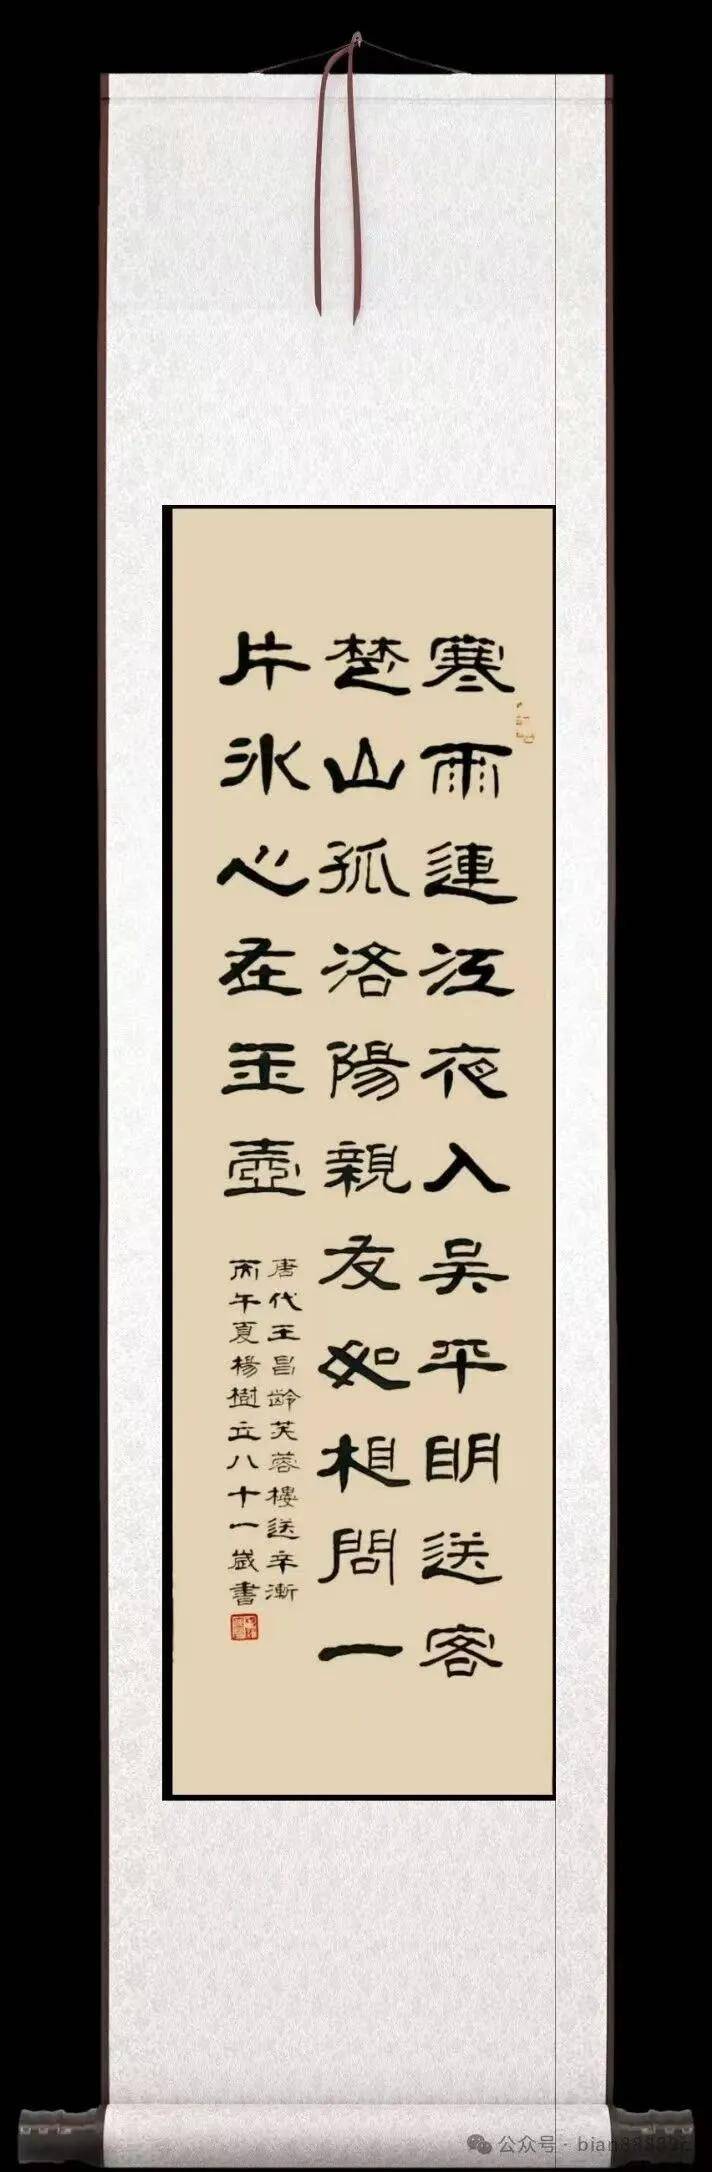 寒雨連江夜入吴平明送客
楚山孤洛陽親友如相問一
片冰心在玉壺
唐代王昌龄芙蓉樓送辛漸
丙午夏楊樹立八十一歲書
公众号 · bian88889c